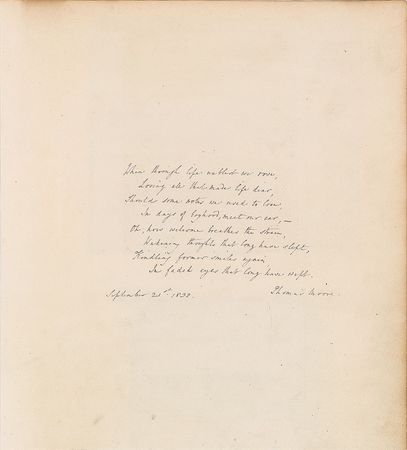 When through life unblest we rove,
Losing all that made life dear,
Should some notes we used to love
In days of boyhood, meet our ear, —
Oh, how welcome breathes the strain,
Wakening thoughts that long have slept,
Kindling former smiles again
In faded eyes that long have wept.
September 21st 1838. Thomas Moore.